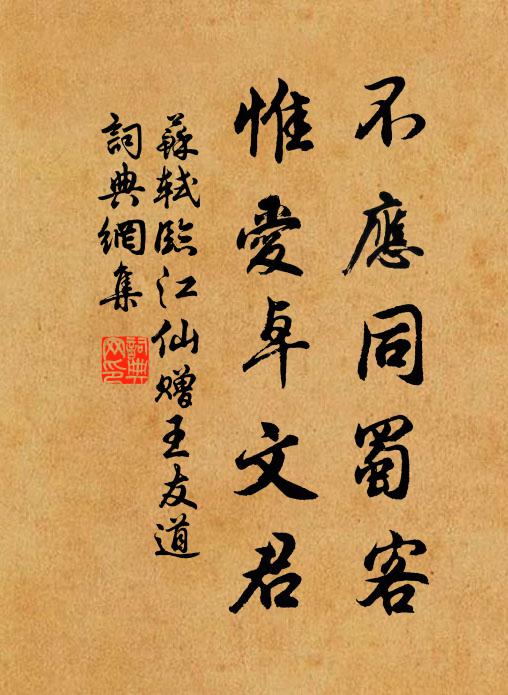 不應同蜀客
惟愛卓文君
蘇軾臨江仙贈王友道
詞典網集
詞典
网印